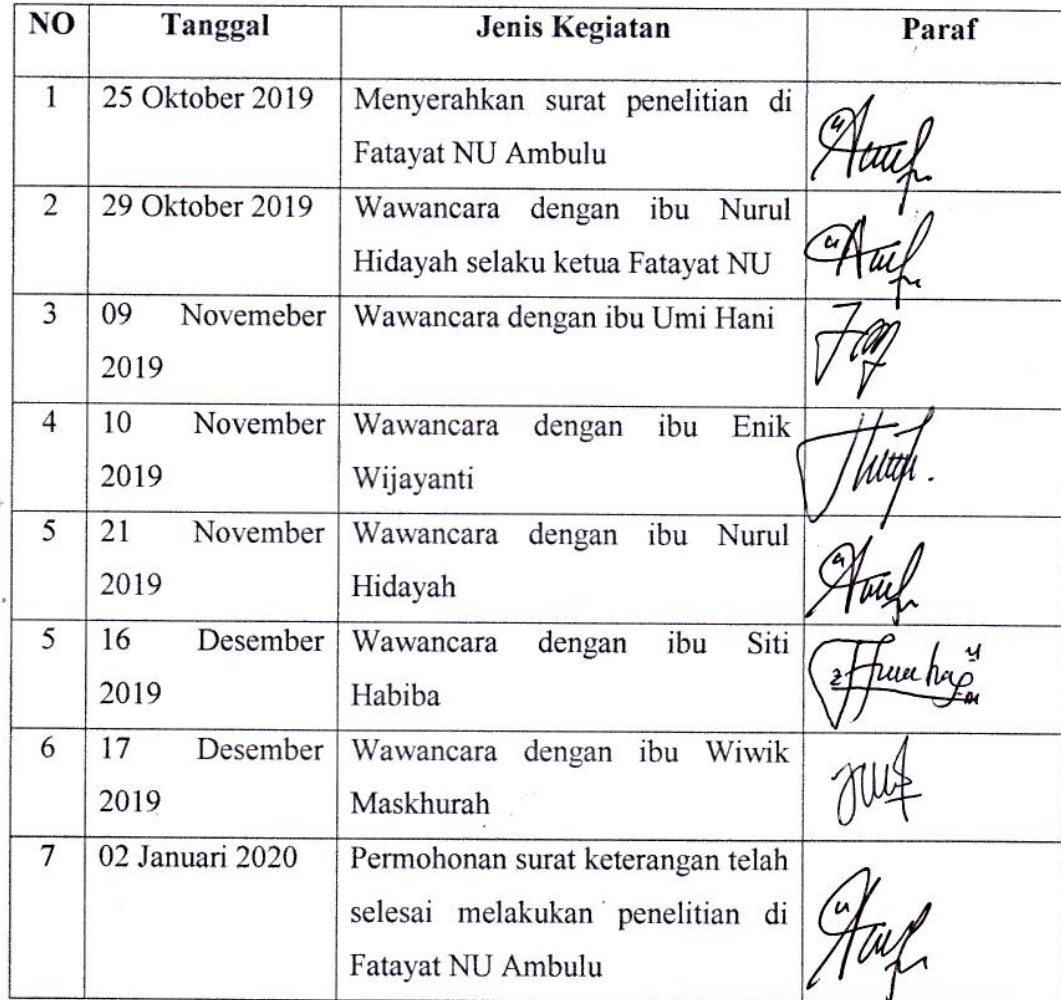 NO Tanggal Jenis Kegiatan Paraf
1 25 Oktober 2019 Menyerahkan surat penelitian di
Fatayat NU Ambulu
2 29 Oktober 2019 Wawancara dengan ibu Nurul
Hidayah selaku ketua Fatayat NU
3 09 Novemeber Wawancara dengan ibu Umi Hani
2019
4 10 November Wawancara dengan ibu Enik
2019 Wijayanti
5 21 November Wawancara dengan ibu Nurul
2019 Hidayah
5 16 Desember Wawancara dengan ibu Siti
2019 Habiba
6 17 Desember Wawancara dengan ibu Wiwik
2019 Maskhurah
7 02 Januari 2020 Permohonan surat keterangan telah
selesai melakukan penelitian di
Fatayat NU Ambulu